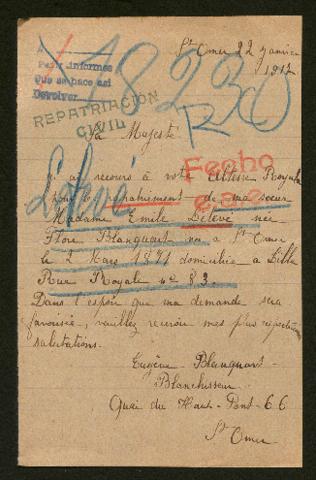 A
Para informes
que se hace asi
Devolver
18230
R
REPATRIACIÓN
CIVIL
Fecho
Lelevé
St Omer 22 janvier
1917
Sa Majesté
J'ai recours à votre Altesse Royale
pour le rapatriement de ma sœur
Madame Emile Delevé née
Flore Blanquart née à St Omer
le 2 Mars 1891 domiciliée à Lille
Rue Royale no 83.
Dans l'espoir que ma demande sera
favorisée, veuillez recevoir mes plus respectueuses
salutations.
Eugène Blanquart
Blanchisseur
Quai du Haut-Pont 66
St Omer